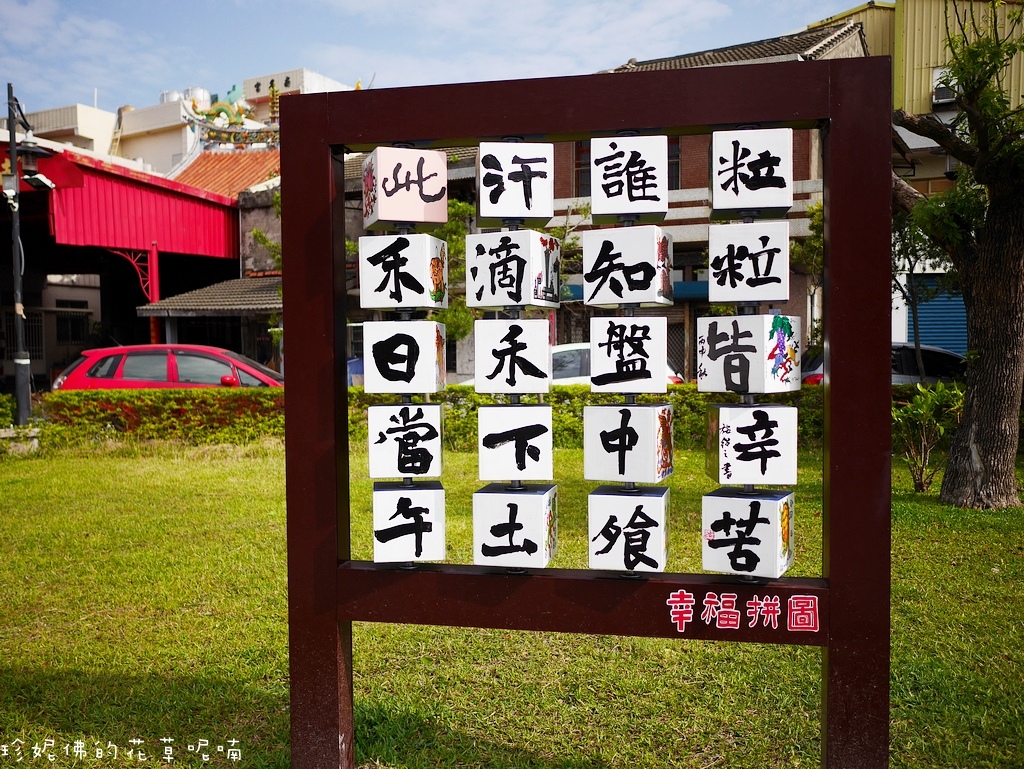 此禾日當午
汗滴禾下土
誰知盤中飱
粒粒皆辛苦
丙申秋
幸福拼圖
珍妮佛的花草呢喃